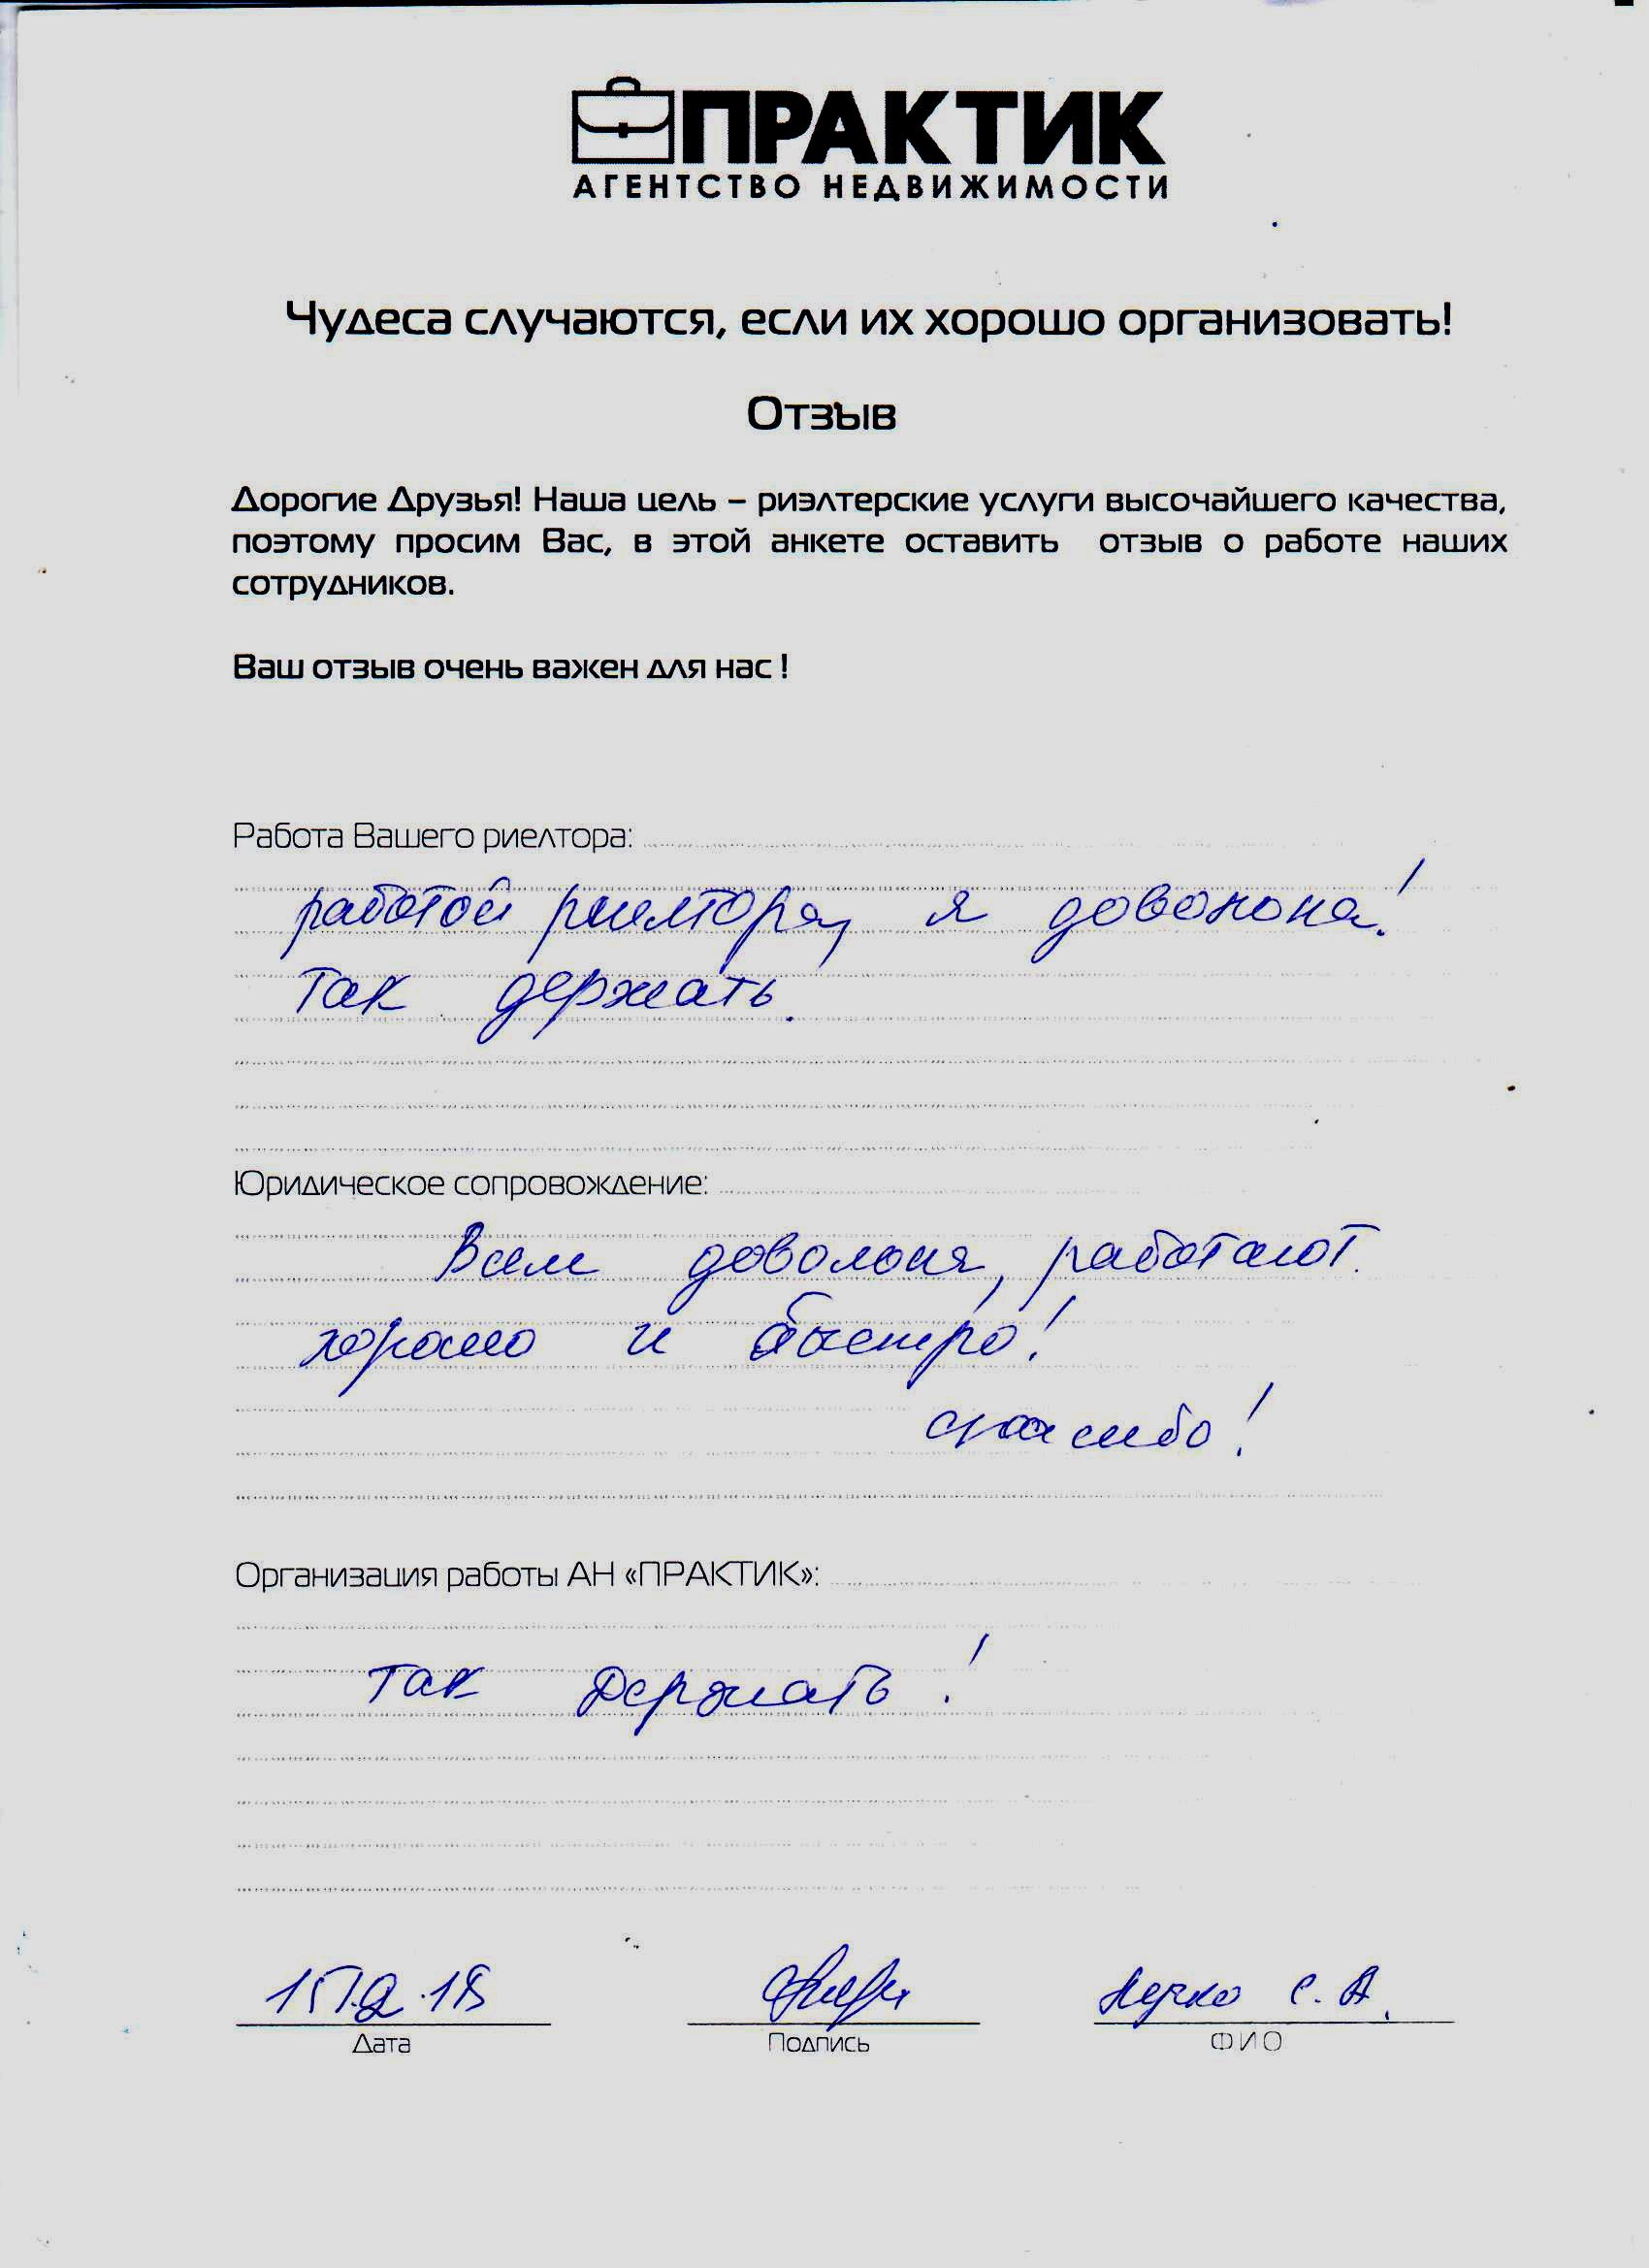 ПРАКТИК
АГЕНТСТВО НЕДВИЖИМОСТИ
Чудеса случаются, если их хорошо организовать!
Отзыв
Дорогие Друзья! Наша цель – риэлтерские услуги высочайшего качества,
поэтому просим Вас, в этой анкете оставить отзыв о работе наших
сотрудников.
Ваш отзыв очень важен для нас !
Работа Вашего риелтора:
работой риелтора, я
Так держать.
Юридическое сопровождение:
Всем работают
хорошо и быстро!
спасибо!
Организация работы АН «ПРАКТИК»:
Так держать!
С. А.
Дата Подпись ФИО